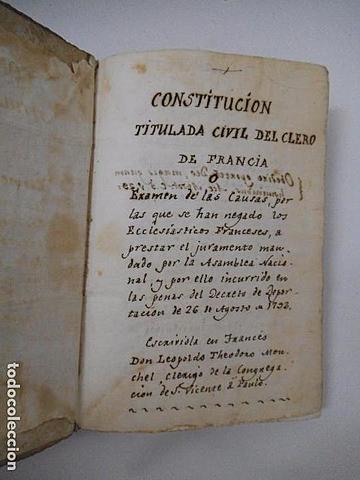 CONSTITUCION
TITULADA CIVIL DEL CLERO
DE FRANCIA
O
Examen de las Causas, por
las que se han negado los
Ecclesiasticos Franceses, a
prestar el juramento man-
dado por la Asamblea Nacio-
nal, y por ello incurrido en
las penas del Decreto de Depor-
tacion de 26 de Agosto de 1792.
Escriviola en Francés
Don Leopoldo Theodoro Mon-
chel, clerigo de la Congrega-
cion de Sn. Vicente a Paulo.
todocoleccion.net